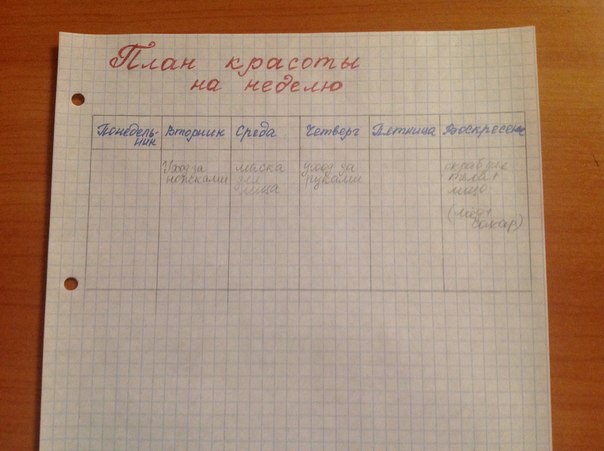 План красоты
на неделю
Понедель-
ник
Вторник
Среда
Четверг
Пятница
Воскресенье
Уход за
ножками
маска
для
лица
уход за
руками
скраб для
тела и
лица
(мёд +
сахар)